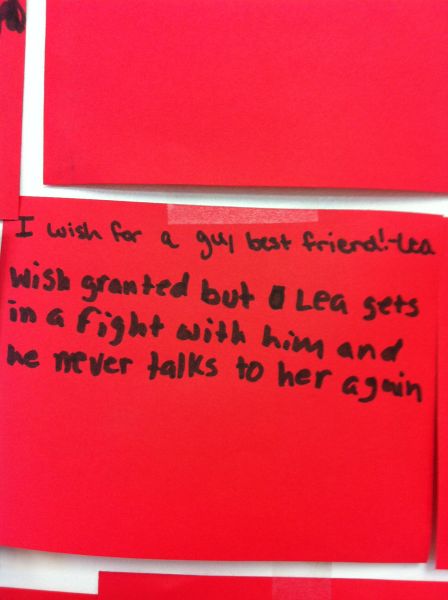 I wish for a guy best friend!-Lea
wish granted but Lea gets
in a fight with him and
he never talks to her again